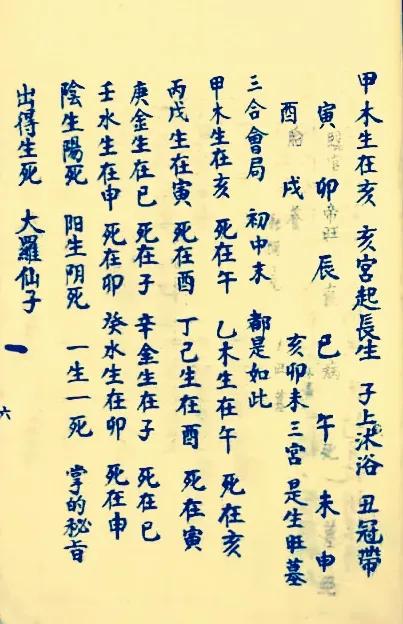 甲木生在亥 亥宮起長生 子上沐浴 丑冠帶
寅 卯 辰 巳 午 未 申
酉 戌 亥卯未三宮 是生旺墓
三合會局 初中末 都是如此
甲木生在亥 死在午 乙木生在午 死在亥
丙戊生在寅 死在酉 丁己生在酉 死在寅
庚金生在巳 死在子 辛金生在子 死在巳
壬水生在申 死在卯 癸水生在卯 死在申
陰生陽死 阳生阴死 一生一死 掌的秘旨
出得生死 大羅仙子
六